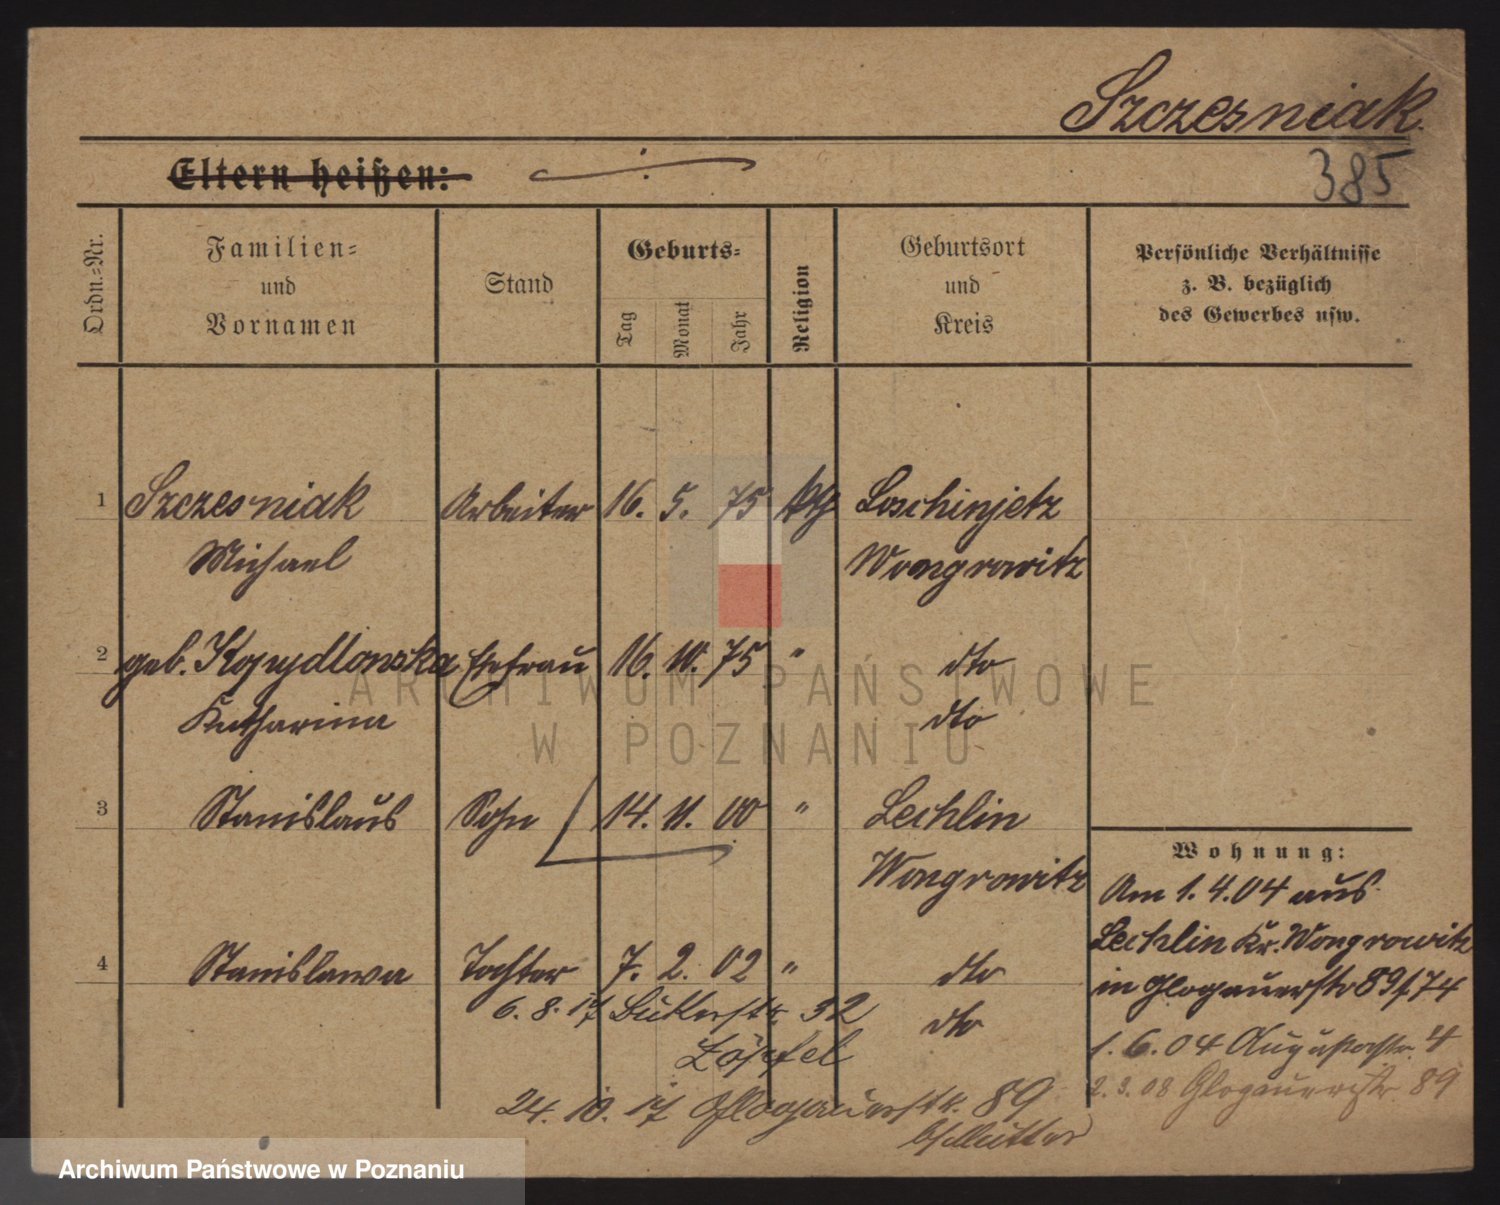 Szczesniak.
Eltern heißen:
385
Ordn.=Nr.
Familien=
und
Vornamen
Stand
Geburts=
Tag
Monat
Jahr
Religion
Geburtsort
und
Kreis
Persönliche Verhältnisse
z. B. bezüglich
des Gewerbes usw.
1 Szczesniak Arbeiter 16. 5. 75 kth Loschinjetz
Michael Wongrowitz
2 geb. Kopydlowska Ehefrau 16. 75 " dto
Katharina dto
3 Stanislaus Sohn 14. 11. 00 " Lechlin
Wongrowitz
Wohnung:
Am 1.4.04 aus
Lechlin Kr. Wongrowitz
in Glogauerstr 89/74
4 Stanislawa Tochter 7. 2. 02 " dto
dto
6. 8. 17 32
1.6.04 Augustastr. 4
2.3.08 Glogauerstr. 89
24. 10. 17 Glogauerstr. 89
ARCHIWUM PAŃSTWOWE
W POZNANIU
Archiwum Państwowe w Poznaniu